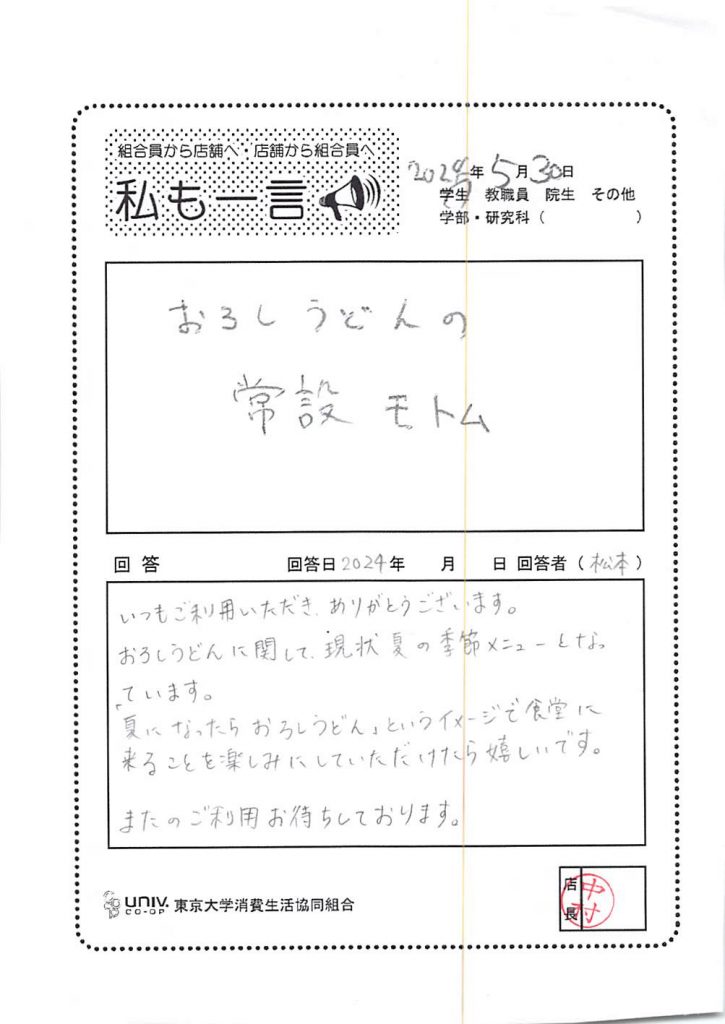 組合員から店舗へ・店舗から組合員へ
私も一言
2024年5月30日
学生 教職員 院生 その他
学部・研究科（ ）
おろしうどんの
常設 モトム
回答 回答日2024年 月 日 回答者（松本）
いつもご利用いただき、ありがとうございます。
おろしうどんに関して、現状夏の季節メニューとなっ
ています。
「夏になったらおろしうどん」というイメージで食堂に
来ることを楽しみにしていただけたら嬉しいです。
またのご利用お待ちしております。
UNIV.
CO-OP
東京大学消費生活協同組合
店長
中村